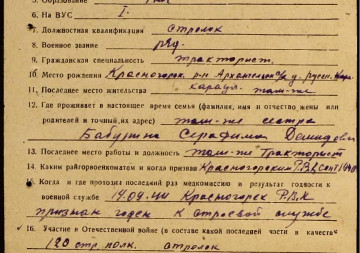 5. Образование
6. На ВУС I.
7. Должностная квалификация стрелок
8. Военное звание ряд.
9. Гражданская специальность тракторист.
10. Место рождения Красногорск. р-н д. русск.
11. Последнее место жительства караул. там-же
12. Где проживает в настоящее время семья (фамилия, имя и отчество жены или
родителей и точный их адрес) там-же сестра
Бабушина Серафима Демидовн
13. Последнее место работы и должность там-же Тракторист
14. Каким райгорвоенкоматом и когда призван Красногорским Р.В.К
15. Когда и где проходил последний раз медкомиссию и результат годности к
военной службе 14.09.44 Красногорск Р.В.К
признан годен к строевой службе
16. Участие в Отечественной войне (в составе какой последней части и в качеств
120 стр. полк. стрелок